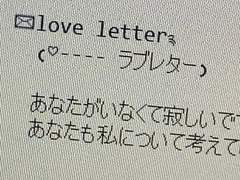 ✉love letter༉
(♡---- ラブレター)
あなたがいなくて寂しいで
あなたも私について考えて